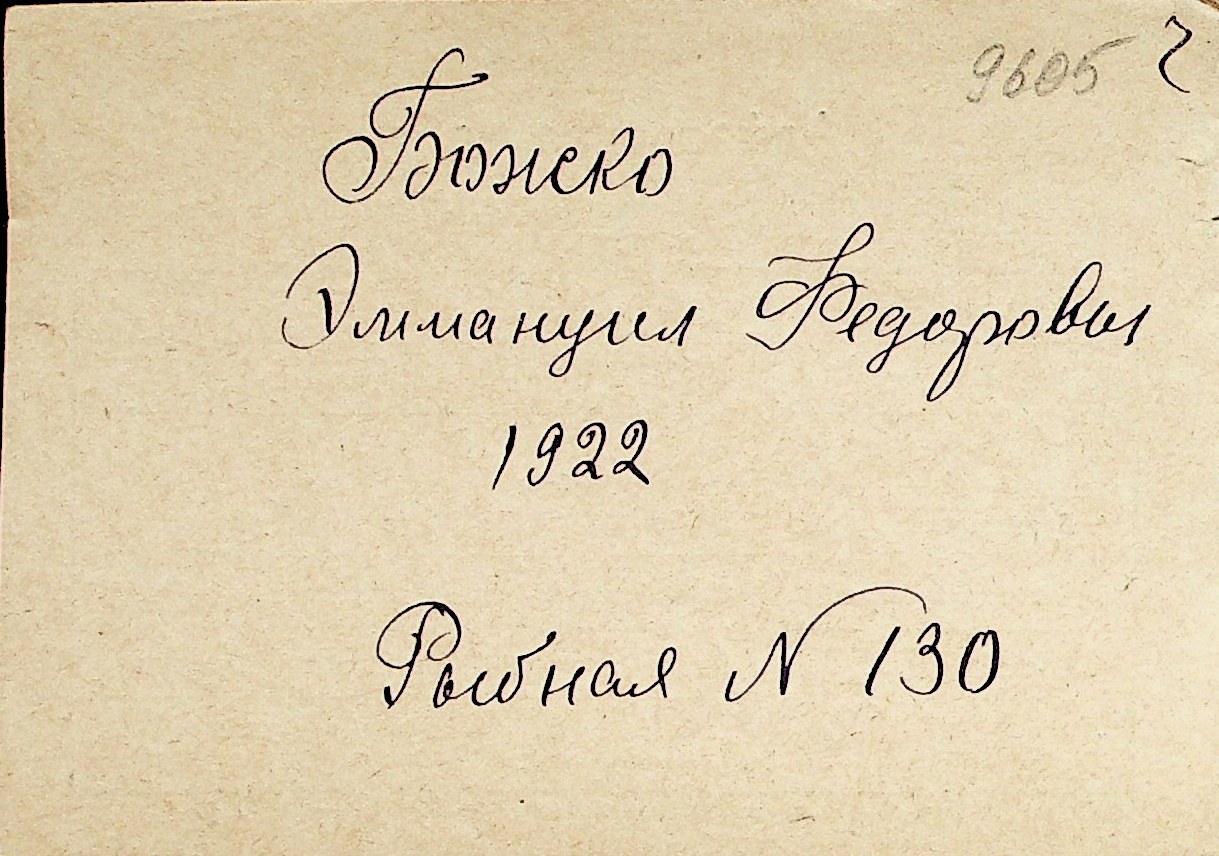 9605 ч
Божко
Эммануил Федорович
1922
Рыбная N 130